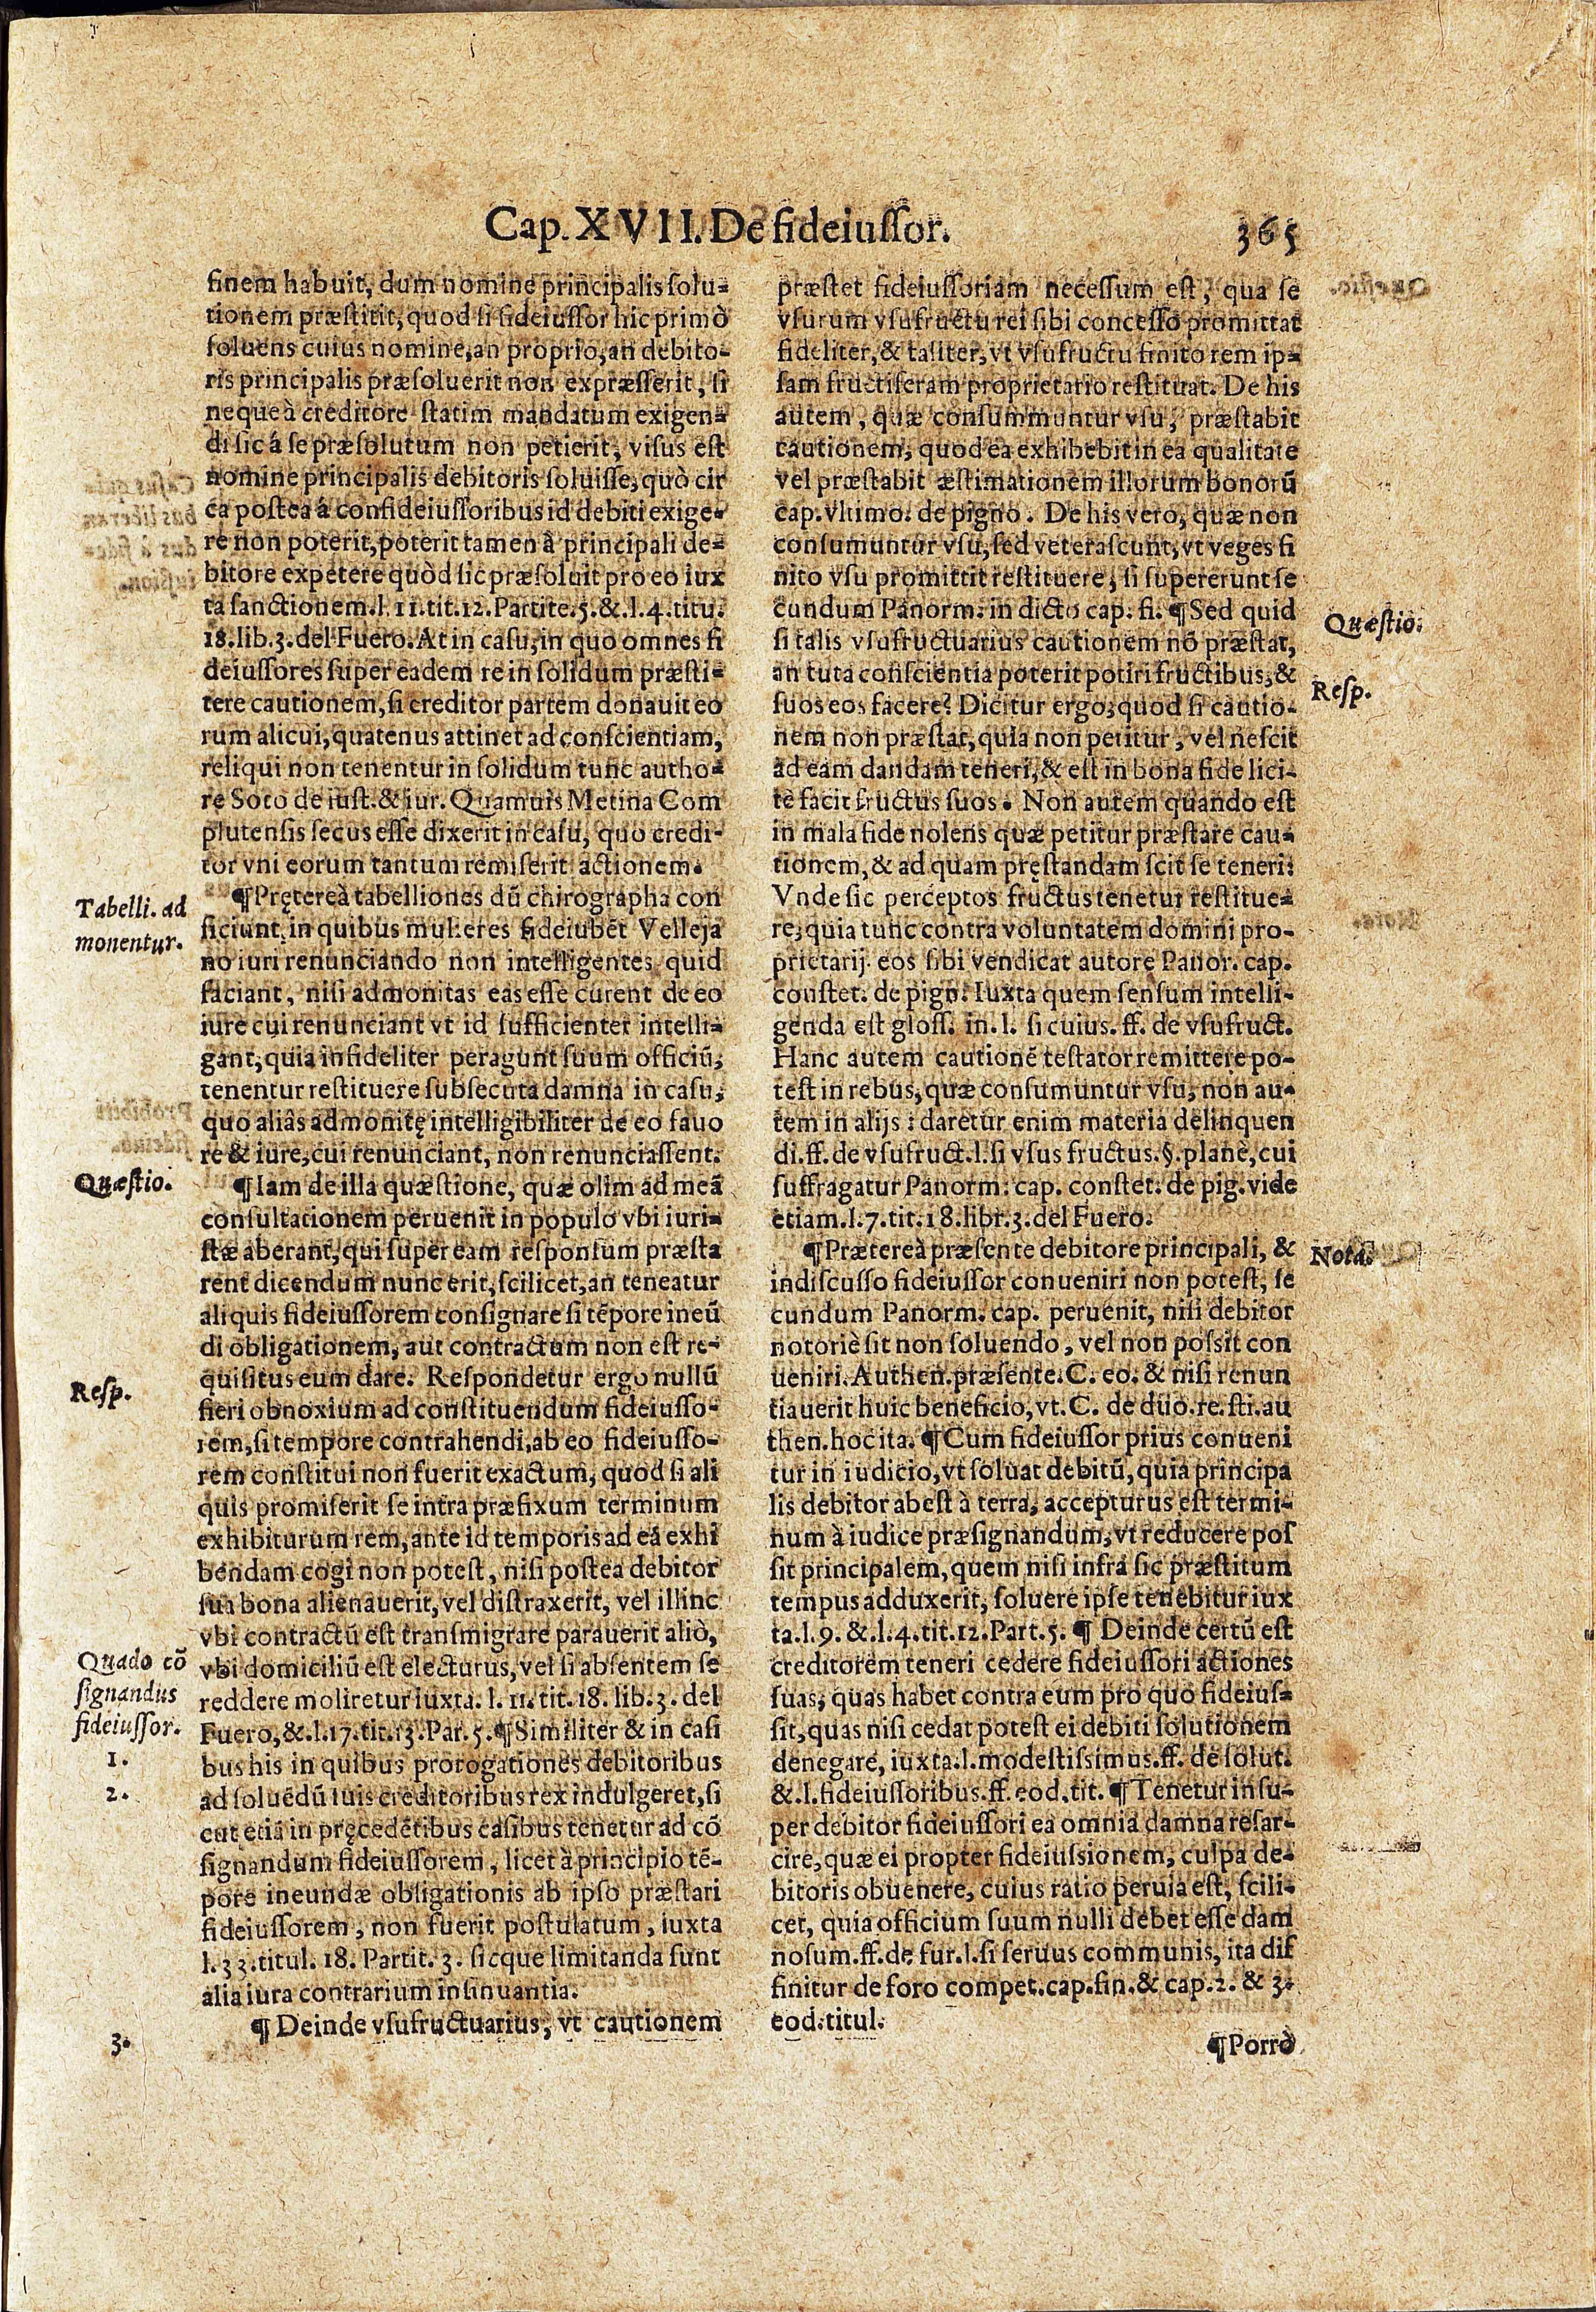 Cap. XVII. De fideiussor. 365
finem habuit, dum nomine principalis solu-
tionem præstitit, quod si fideiussor hic primò
soluens cuius nomine, an proprio, an debito-
ris principalis præsoluerit non expræsserit, si
neque à creditore statim mandatum exigen-
di sic á se præsolutum non petierit, visus est
nomine principalis debitoris soluisse, quò cir
ca postea á confideiussoribus id debiti exige-
re non poterit, poterit tamen â principali de-
bitore expetere quòd sic præsoluit pro eo iux
ta sanctionem. l. 11. tit. 12. Partite. 5. &. l. 4. titu.
18. lib. 3. del Fuero. At in casu, in quo omnes fi
deiussores super eadem re in solidum præsti-
tere cautionem, si creditor partem donauit eo
rum alicui, quatenus attinet ad conscientiam,
reliqui non tenentur in solidum tunc autho-
re Soto de iust. & iur. Quamuis Metina Com
plutensis secus esse dixerit in casu, quo credi-
tor vni eorum tantum remiserit actionem.
Tabelli. ad
monentur.
¶Pręterea tabelliones dũ chirographa con
ficiunt, in quibus mulieres fideiubẽt Velleja
no iuri renunciando non intelligentes quid
faciant, nisi admonitas eas esse curent de eo
iure cui renunciant vt id sufficienter intelli-
gant, quia infideliter peragunt suum officiũ,
tenentur restituere subsecuta damna in casu,
quo aliâs admonitę intelligibiliter de eo fauo
re & iure, cui renunciant, non renunciassent.
Quæstio.
¶Iam de illa quæstione, quæ olim ad meã
consultationem peruenit in populo vbi iuri-
stæ aberant, qui super eam responsum præsta
rent dicendum nunc erit, scilicet, an teneatur
aliquis fideiussorem consignare si tẽpore ineũ
di obligationem, aut contractum non est re-
quisitus eum dare. Respondetur ergo nullũ
Resp.
fieri obnoxium ad constituendum fideiusso-
rem, si tempore contrahendi, ab eo fideiusso-
rem constitui non fuerit exactum, quod si ali
quis promiserit se intra præfixum terminum
exhibiturum rem, ante id temporis ad eã exhi
bendam cogi non potest, nisi postea debitor
sua bona alienauerit, vel distraxerit, vel illinc
vbi contractũ est transmigrare parauerit aliò,
Quãdo cõ
signandus
fideiussor.
1.
2.
vbi domiciliũ est electurus, vel si absentem se
reddere moliretur iuxta. l. 11. tit. 18. lib. 3. del
Fuero, &. l. 17. tit. 13. Par. 5. ¶Similiter & in casi
bus his in quibus prorogationes debitoribus
ad soluẽdũ suis creditoribus rex indulgeret, si
cut etiã in pręcedẽtibus casibus tenetur ad cõ
signandum fideiussorem, licet à principio tẽ-
pore ineundæ obligationis ab ipso præstari
fideiussorem, non fuerit postulatum, iuxta
l. 33. titul. 18. Partit. 3. sicque limitanda sunt
alia iura contrarium insinuantia.
3.
¶Deinde vsufructuarius, vt cautionem
præstet fideiussoriam necessum est, qua se
vsurum vsufructu rei sibi concesso promittat
fideliter, & taliter, vt vsufructu finito rem ip-
sam fructiferam proprietario restituat. De his
autem, quæ consummuntur vsu, præstabit
cautionem, quod ea exhibebit in ea qualitate
vel præstabit æstimationem illorum bonorũ
cap. vltimo. de pigno. De his vero, quæ non
consumuntur vsu, sed veterascunt, vt veges fi
nito vsu promittit restituere, si supererunt se
cundum Panorm. in dicto cap. fi. ¶Sed quid
Quæstio.
si talis vsufructuarius cautionem nõ præstat,
an tuta conscientia poterit potiri fructibus, &
Resp.
suos eos facere? Dicitur ergo, quod si cautio-
nem non præstat, quia non petitur, vel nescit
ad eam dandam teneri, & est in bona fide lici-
tè facit fructus suos. Non autem quando est
in mala fide nolens quæ petitur præstare cau-
tionem, & ad quam pręstandam scit se teneri:
Vnde sic perceptos fructus tenetur restitue-
re, quia tunc contra voluntatem domini pro-
prietarij eos sibi vendicat autore Panor. cap.
constet. de pign. Iuxta quem sensum intelli-
genda est gloss. in. l. si cuius. ff. de vsufruct.
Hanc autem cautionẽ testator remittere po-
test in rebus, quæ consumuntur vsu, non au-
tem in alijs: daretur enim materia delinquen
di. ff. de vsufruct. l. si vsus fructus. §. planè, cui
suffragatur Panorm. cap. constet. de pig. vide
etiam. l. 7. tit. 18. libr. 3. del Fuero.
¶Prætereà præsente debitore principali, &
Nota.
indiscusso fideiussor conueniri non potest, se
cundum Panorm. cap. peruenit, nisi debitor
notoriè sit non soluendo, vel non possit con
ueniri. Authen. præsente. C. eo. & nisi renun
tiauerit huic beneficio, vt. C. de duo. re. sti. au
then. hoc ita. ¶Cum fideiussor prius conueni
tur in iudicio, vt soluat debitũ, quia principa
lis debitor abest à terra, accepturus est termi-
num à iudice præsignandum, vt reducere pos
sit principalem, quem nisi infra sic præstitum
tempus adduxerit, soluere ipse tenebitur iux
ta. l. 9. &. l. 4. tit. 12. Part. 5. ¶Deinde certũ est
creditorem teneri cedere fideiussori actiones
suas, quas habet contra eum pro quo fideius-
sit, quas nisi cedat potest ei debiti solutionem
denegare, iuxta. l. modestissimus. ff. de solut.
&. l. fideiussoribus. ff. eod. tit. ¶Tenetur insu-
per debitor fideiussori ea omnia damna resar-
cire, quæ ei propter fideiussionem, culpa de-
bitoris obuenere, cuius ratio peruia est, scili-
cet, quia officium suum nulli debet esse dam
nosum. ff. de fur. l. si seruus communis, ita dif
finitur de foro compet. cap. fin. & cap. 2. & 3.
eod. titul.
¶Porrò